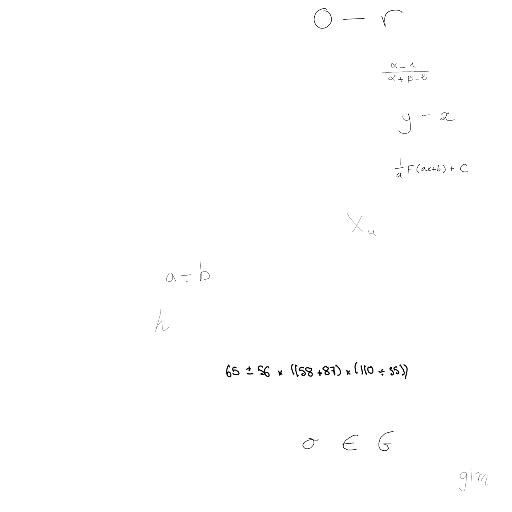 0 — r
α-1 / α+β-2
y - x
1/a F(ax+b) + C
X_u
a ÷ b
h
65 ± 56 × ((58+87) × (110 ÷ 55))
σ ∈ G
g1m